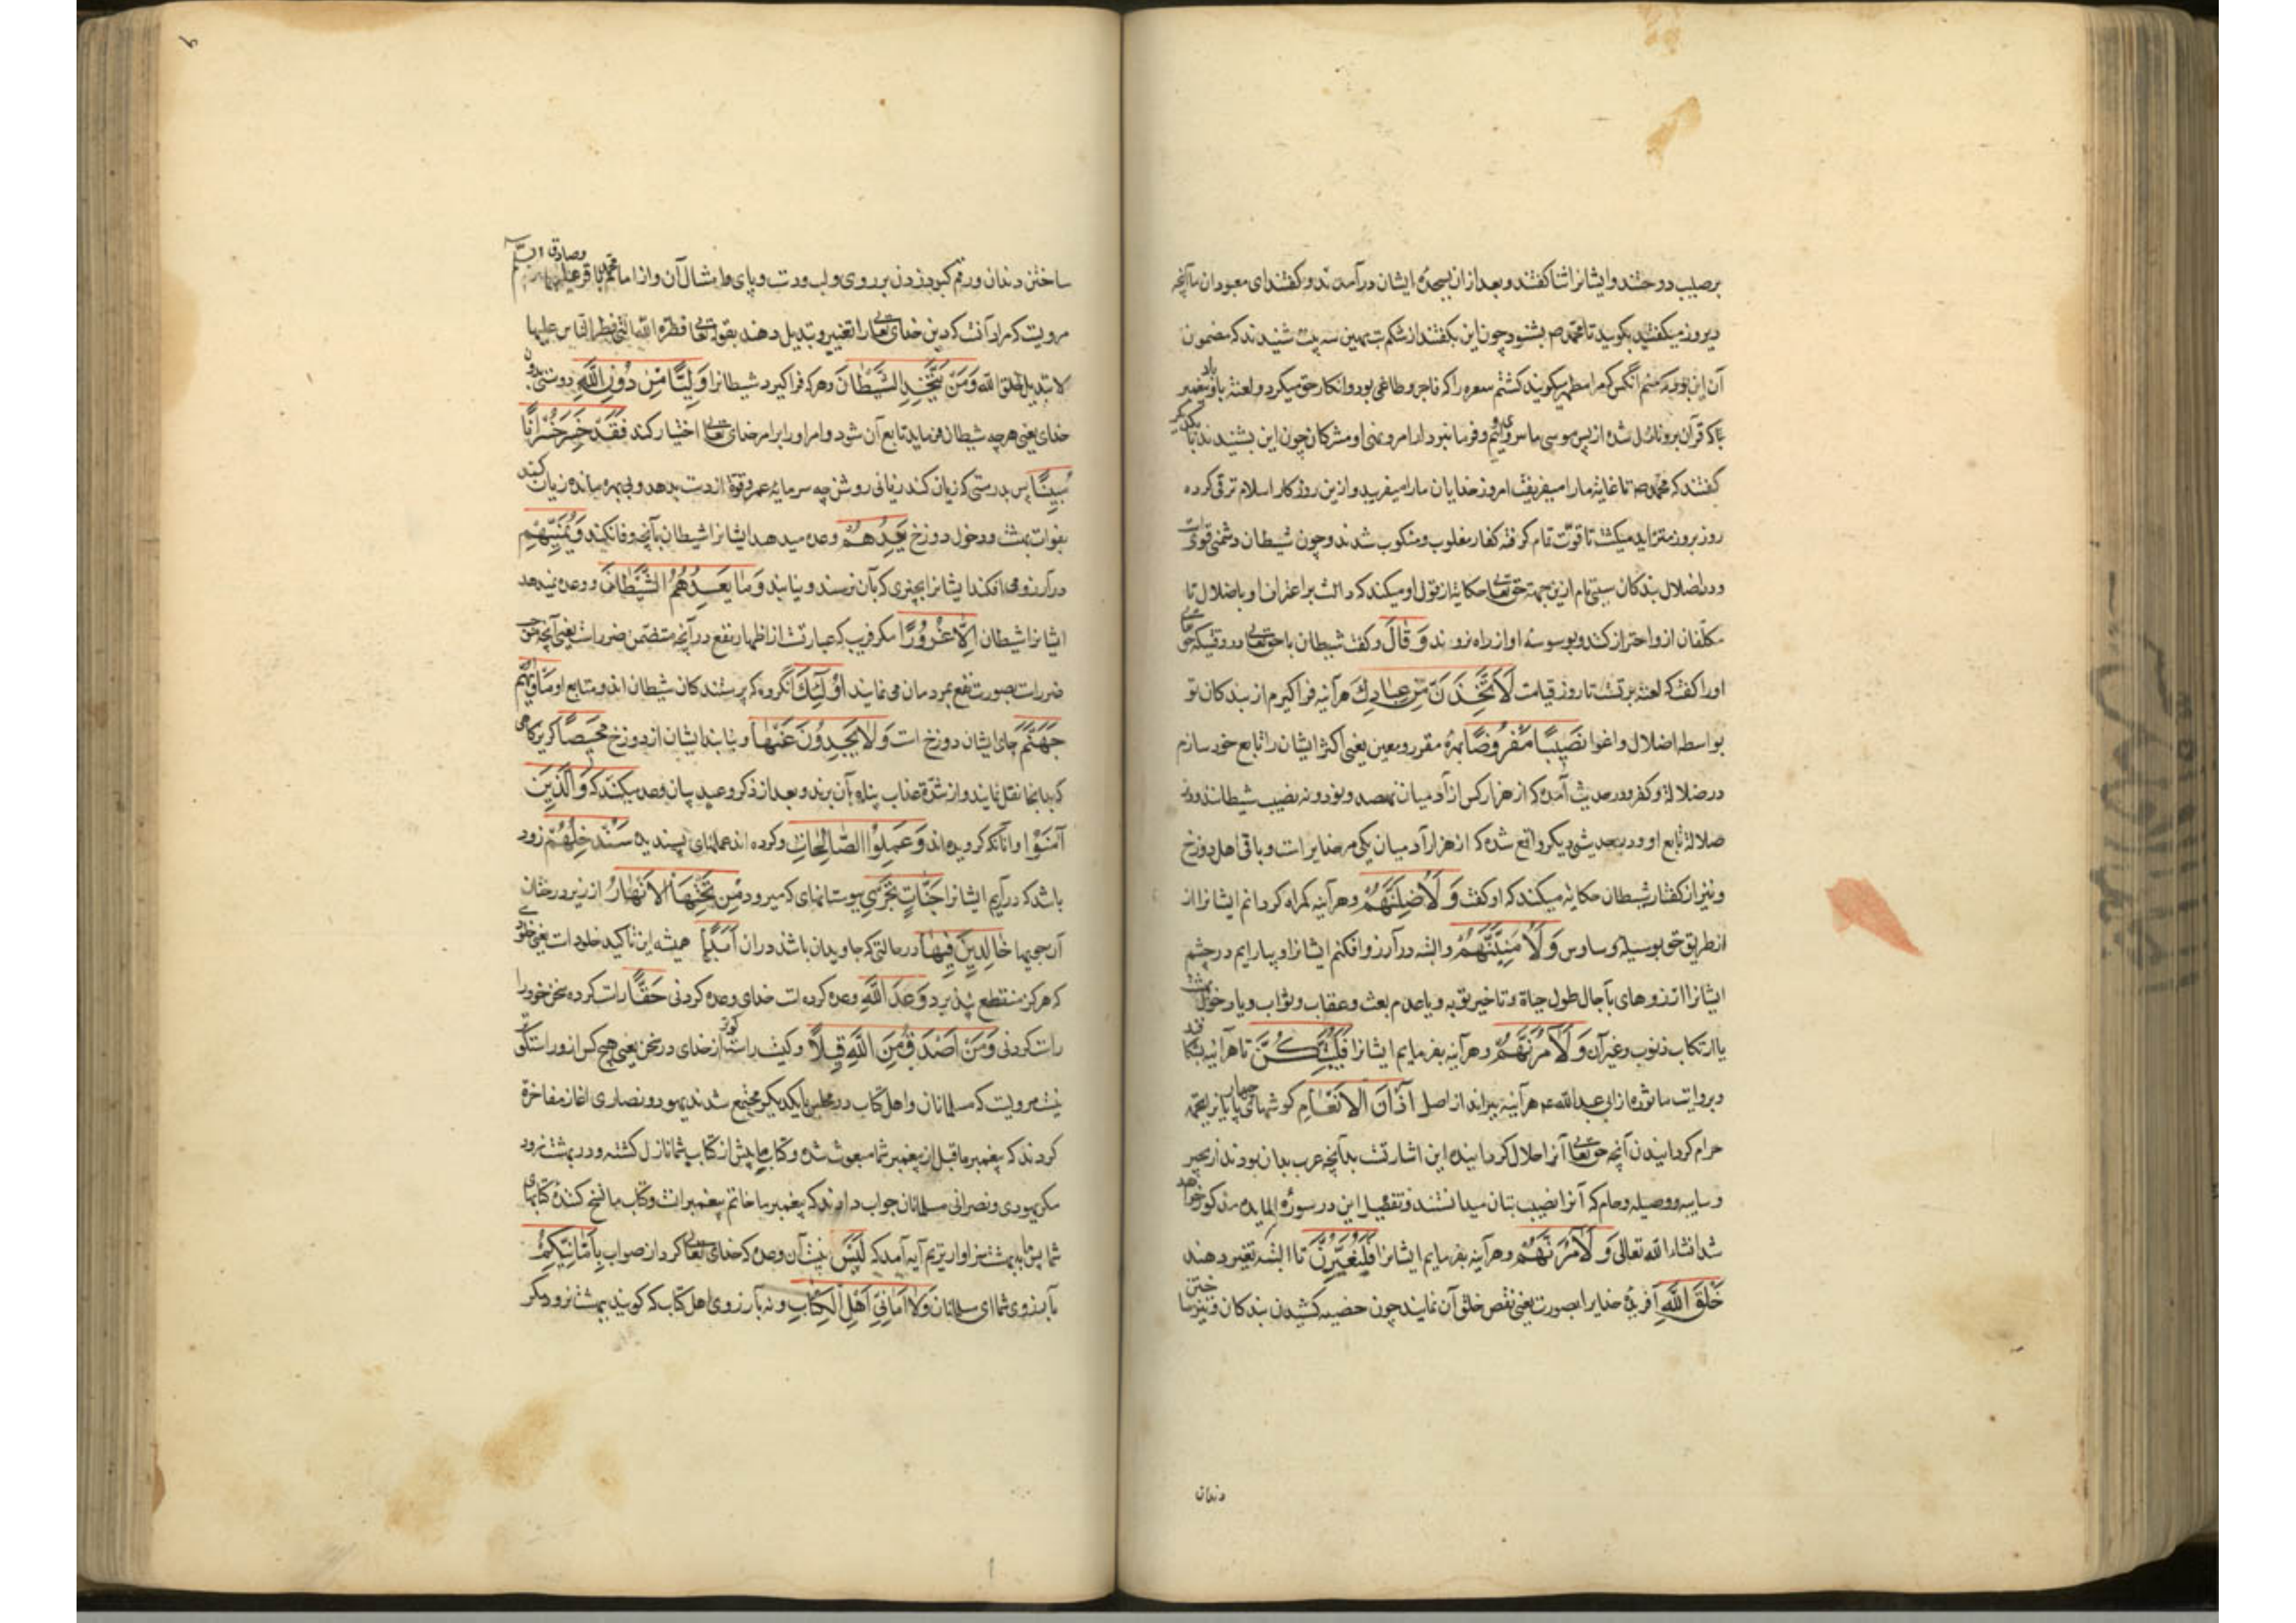 بر صلیب دوختند و ایشانرا ثنا گفتند و بعد از ان بسجدهٔ ایشان درآمدند و گفتند ای معبودان ما آنچه
دیروز میگفتید بگویید تا محمد ص بشنود چون این بگفتند از شکم بت بهمین سه بیت شنیدند که مضمون
آن این بود که منم آنکس که مرا مطهر میگویند کشتم مسعر را که فاجر و طاغی بود و انکار حق میکرد و لعنة باد بر پیغمبر
که قرآن برو نازل شده از پس موسی و فرمانبردار امر و نهی او مشرکان چون این بشنیدند با یکدیگر
گفتند که محمد ص تا غایة ما را میفریفت امروز خدایان ما را میفریبد و ازین روز کار اسلام ترقی کرده
روز بروز متزاید میگشت تا قوّت تمام گرفته کفار مغلوب و منکوب شدند و چون شیطان دشمنی قوی است
و در اضلال بندگان سببی تام ازین جهته حق تعالی حکایة از قول او میکند که دالست بر اعتراف او باضلال تا
مکلّفان ازو احتراز کنند و بوسوسهٔ او از راه نروند وَقَالَ و گفت شیطان با حق تعالی در وقتیکه حق تعالی
او را گفت که لعنة بر تست تا روز قیامت لَاَتَّخِذَنَّ مِنْ عِبَادِكَ هرآینه فرا گیرم از بندگان تو
بواسطه اضلال و اغوا نَصِيبًا مَفْرُوضًا بهرهٔ مقرر و معین یعنی اکثر ایشان را تابع خود سازم
در ضلالة و کفر و در حدیث آمده که از هزار کس از آدمیان نهصد و نود و نه نصیب شیطانند و در
ضلالة تابع او و در حدیثی دیگر واقع شده که از هزار آدمیان یکی مر خدایراست و باقی اهل دوزخ
و نیز از گفتار شیطان حکایة میکند که او گفت وَلَاُضِلَّنَّهُمْ و هرآینه گمراه گردانم ایشانرا از
از طریق حق بوسیلهٔ وساوس وَلَاُمَنِّيَنَّهُمْ و البته در آرزو افکنم ایشانرا و بیارایم در چشم
ایشانرا آرزوهای بآجال طول حیاة و تاخیر توبه و یا عدم بعث و عقاب و ثواب و یا دخول بهشت
با ارتکاب ذنوب و غیر آن وَلَاٰمُرَنَّهُمْ و هرآینه بفرمایم ایشانرا فَلَيُبَتِّكُنَّ تا هرآینه بشکافند
و بروایت ماثوره از ابی عبدالله ع هرآینه ببرند از اصل اٰذَانَ الْاَنْعَامِ گوشهای چهارپایانرا بجهة
حرام گردانیدن آنچه حق تعالی آنرا حلال گردانیده این اشارتست بدآنچه عرب بدان بودند از بحیر
و سایبه و وصیله و حام که آنرا نصیب بتان میدانستند و تفصیل این در سورهٔ المایده مذکور خواهد
شد انشاء الله تعالی وَلَاٰمُرَنَّهُمْ و هرآینه بفرمایم ایشانرا فَلَيُغَيِّرُنَّ تا البته تغییر دهند
خَلْقَ اللّٰهِ آفریدهٔ خدایرا بصورت یعنی نقص خلق آن نمایند چون خصیه کشیدن بندگان و تیز ساختن
دندان
ساختن دندان و رقم کبود زدن بر روی و لب و دست و پای و امثال آن و از امام محمد باقر و صادق علیهما
مرویست که مراد آنست که دین خدای تعالی را تغییر و تبدیل دهند بقوله تعالی فطرة الله التی فطر الناس علیها
لا تبدیل لخلق الله وَمَنْ يَتَّخِذِ الشَّيْطَانَ و هر که فرا گیرد شیطانرا وَلِيًّا مِنْ دُونِ اللّٰهِ دوستی بدون
خدای یعنی هرچه شیطان فرماید تابع آن شود و امر او را بر امر خدای تعالی اختیار کند فَقَدْ خَسِرَ خُسْرَانًا
مُبِينًا پس بدرستی که زیان کند زیانی روشن چه سرمایهٔ عمر و قوة از دست بدهد و بی بهره مانده زیان کند
بفوات بهشت و دخول دوزخ يَعِدُهُمْ وعده میدهد ایشانرا شیطان بآنچه وفا نکند وَيُمَنِّيهِمْ
در آرزو می افکند ایشانرا بچیزی که بآن نرسند و نیابند وَمَا يَعِدُهُمُ الشَّيْطَانُ و وعده نمیدهد
ایشانرا شیطان اِلَّا غُرُورًا مگر فریب که عبارتست از اظهار نفع در آنچه متضمن ضررست یعنی آنچه عین
ضررست بصورت نفع بمردمان می نماید اُولٰئِكَ آنگروه که پرستندگان شیطان اند و متابع او مَاْوٰيهُمْ
جَهَنَّمُ جای ایشان دوزخ است وَلَا يَجِدُونَ عَنْهَا و نیابند ایشان از دوزخ مَحِيصًا گریزگاهی
که بدانجا نقل نمایند و از شدّة عذاب پناه بآن برند و بعد از ذکر وعید بیان وعد میکند که وَالَّذِينَ
اٰمَنُوا و آنانکه گرویده اند وَعَمِلُوا الصَّالِحَاتِ و کرده اند عملهای پسندیده سَنُدْخِلُهُمْ زود
باشد که درآریم ایشانرا جَنَّاتٍ تَجْرِي ببوستانهای که میرود مِنْ تَحْتِهَا الْاَنْهَارُ از زیر درختان
آن جویها خَالِدِينَ فِيهَا در حالتی که جاویدان باشند دران اَبَدًا همیشه این تاکید خلود است یعنی خلودی
که هرگز منقطع نپذیرد وَعْدَ اللّٰهِ وعده کرده است خدای وعده کردنی حَقًّا راست کرده سخن خود را
راست کردنی وَمَنْ اَصْدَقُ مِنَ اللّٰهِ قِيلًا و کیست راست گوتر از خدای در سخن یعنی هیچ کس ازو راستگوتر
نیست مرویست که مسلمانان و اهل کتاب در مجلس با یکدیگر مجتمع شدند یهود و نصاری آغاز مفاخرة
کردند که پیغمبر ما قبل از پیغمبر شما مبعوث شده و کتاب ما پیش از کتاب شما نازل گشته و در بهشت نرود
مگر یهودی و نصرانی مسلمانان جواب دادند که پیغمبر ما خاتم پیغمبرانست و کتاب ما نسخ کنندهٔ کتابهای
شما پس ما ببهشت سزاوارتریم آیه آمد که لَيْسَ نیست آن وعده که خدای تعالی کرد از صواب بِاَمَانِيِّكُمْ
بآرزوی شما ای مسلمانان وَلَا اَمَانِيِّ اَهْلِ الْكِتَابِ و نه بآرزوی اهل کتاب که گویند ببهشت نرود مگر